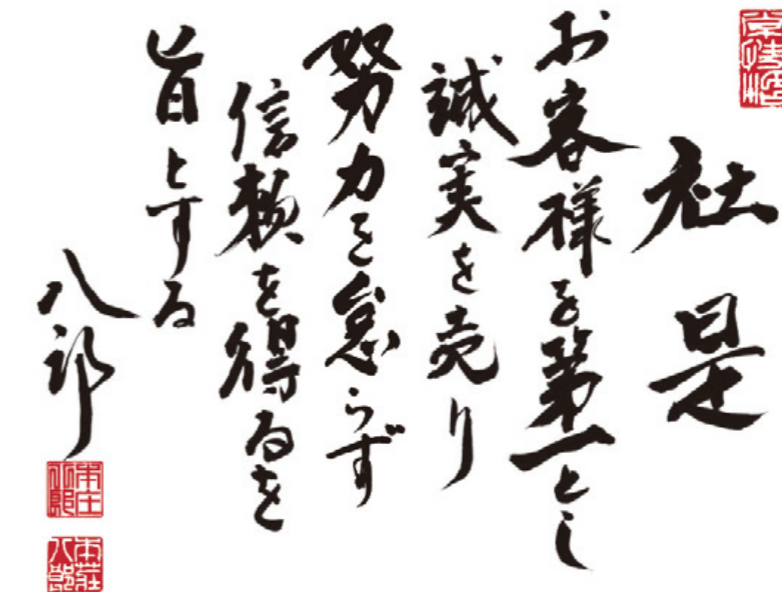 社是
お客様を第一とし
誠実を売り
努力を怠らず
信頼を得るを
旨とする
八郎
本庄
八郎
本荘
八郎